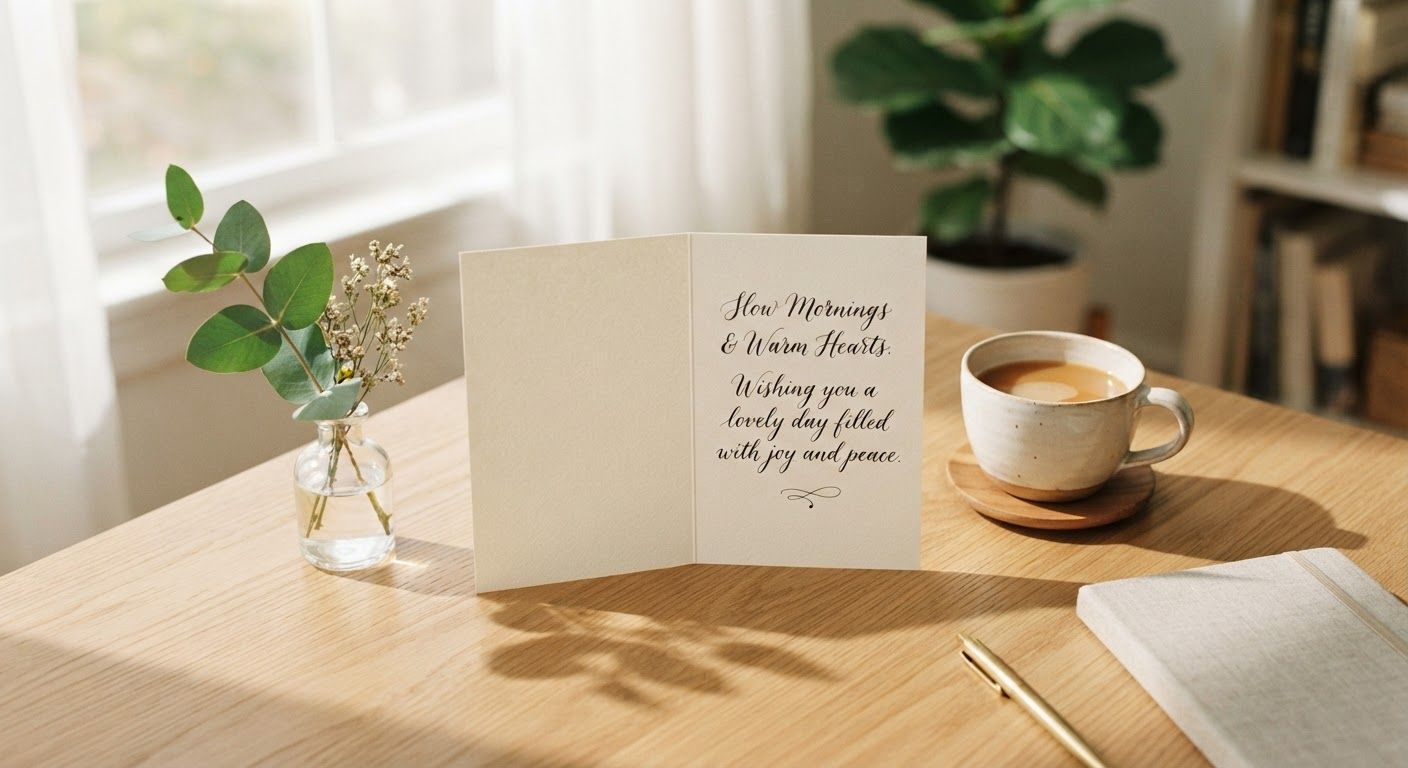 Slow Mornings
& Warm Hearts.
Wishing you a
lovely day filled
with joy and peace.